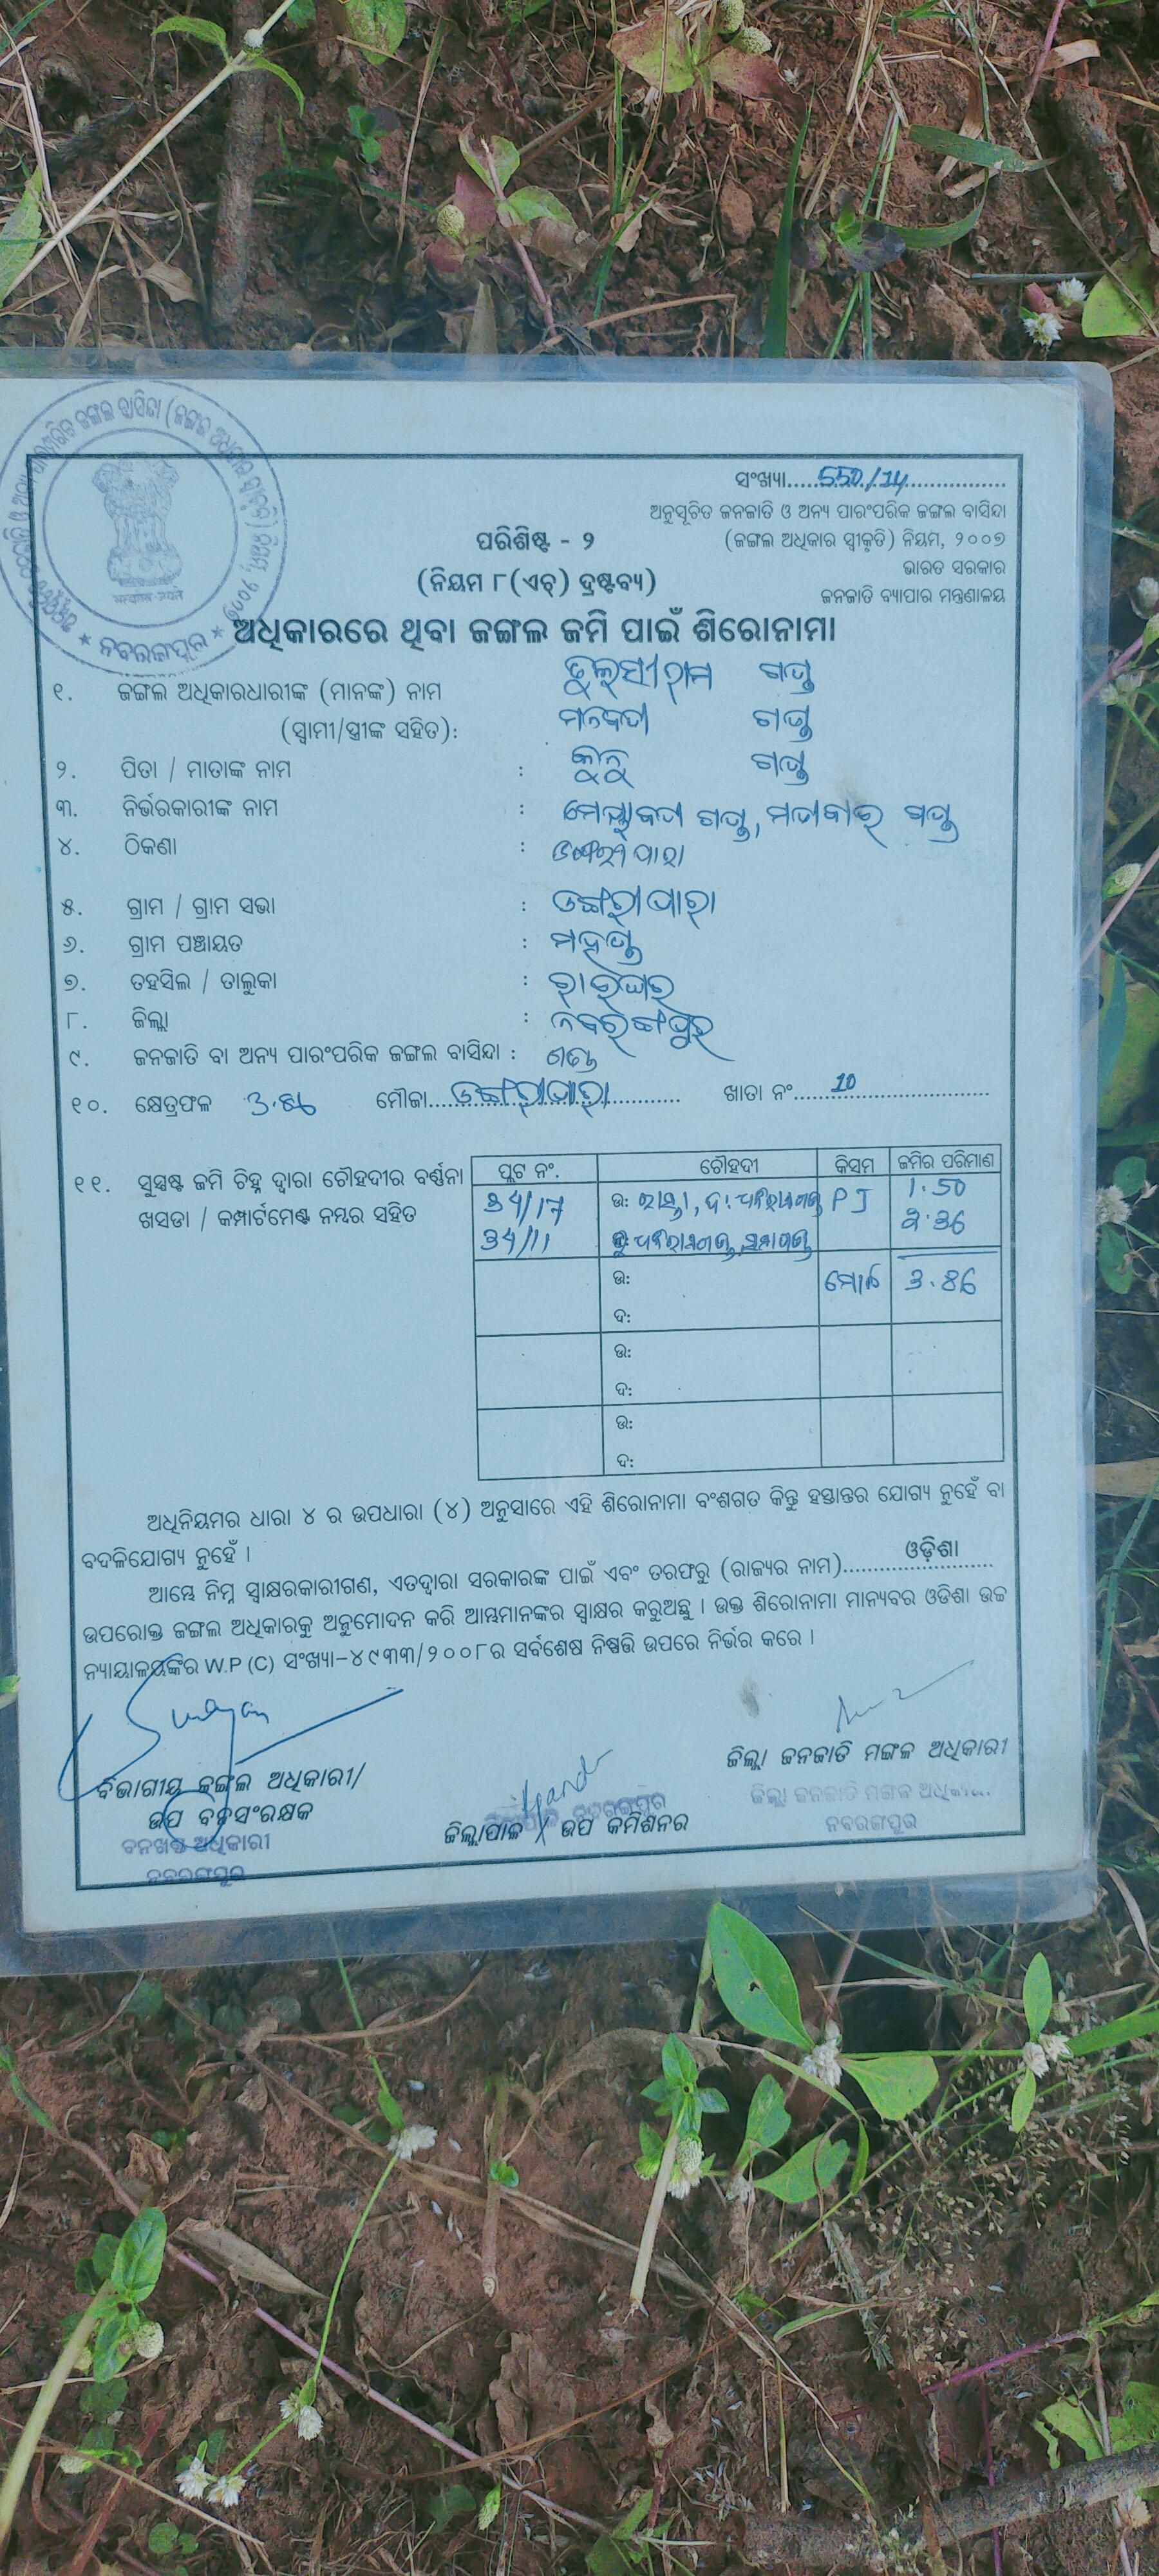 ସଂଖ୍ୟା....550/14....
ଅନୁସୂଚିତ ଜନଜାତି ଓ ଅନ୍ୟ ପାରଂପରିକ ଜଙ୍ଗଲ ବାସିନ୍ଦା
(ଜଙ୍ଗଲ ଅଧିକାର ସ୍ୱୀକୃତି) ନିୟମ, ୨୦୦୭
ଭାରତ ସରକାର
ଜନଜାତି ବ୍ୟାପାର ମନ୍ତ୍ରଣାଳୟ
ନବରଙ୍ଗପୁର
ପରିଶିଷ୍ଟ - ୨
(ନିୟମ ୮(ଏଚ୍) ଦ୍ରଷ୍ଟବ୍ୟ)
ଅଧିକାରରେ ଥିବା ଜଙ୍ଗଲ ଜମି ପାଇଁ ଶିରୋନାମା
୧. ଜଙ୍ଗଲ ଅଧିକାରଧାରୀଙ୍କ (ମାନଙ୍କ) ନାମ ତୁଳସୀରାମ ଗଣ୍ଡ
(ସ୍ୱାମୀ/ସ୍ତ୍ରୀଙ୍କ ସହିତ): ଗଣ୍ଡ
୨. ପିତା / ମାତାଙ୍କ ନାମ : ଗଣ୍ଡ
୩. ନିର୍ଭରକାରୀଙ୍କ ନାମ : ଗଣ୍ଡ, ଗଣ୍ଡ
୪. ଠିକଣା :
୫. ଗ୍ରାମ / ଗ୍ରାମ ସଭା : ଡଙ୍ଗରୀପାରା
୬. ଗ୍ରାମ ପଞ୍ଚାୟତ :
୭. ତହସିଲ / ତାଲୁକା : ରାଇଘର
୮. ଜିଲ୍ଲା : ନବରଙ୍ଗପୁର
୯. ଜନଜାତି ବା ଅନ୍ୟ ପାରଂପରିକ ଜଙ୍ଗଲ ବାସିନ୍ଦା : ଗଣ୍ଡ
୧୦. କ୍ଷେତ୍ରଫଳ 3.86 ମୌଜା....ଡଙ୍ଗରୀପାରା.... ଖାତା ନଂ....10....
୧୧. ସୁସ୍ପଷ୍ଟ ଜମି ଚିହ୍ନ ଦ୍ୱାରା ଚୌହଦୀର ବର୍ଣ୍ଣନା
ଖସଡା / କମ୍ପାର୍ଟମେଣ୍ଟ ନମ୍ବର ସହିତ
ପ୍ଲଟ ନଂ. ଚୌହଦୀ କିସମ ଜମିର ପରିମାଣ
34/17 ଉ: ରାସ୍ତା, ଦ: PJ 1.50
34/11 2.36
ଉ: ମୋଟ 3.86
ଦ:
ଉ:
ଦ:
ଉ:
ଦ:
ଅଧିନିୟମର ଧାରା ୪ ର ଉପଧାରା (୪) ଅନୁସାରେ ଏହି ଶିରୋନାମା ବଂଶଗତ କିନ୍ତୁ ହସ୍ତାନ୍ତର ଯୋଗ୍ୟ ନୁହେଁ ବା
ବଦଳିଯୋଗ୍ୟ ନୁହେଁ ।
ଆମ୍ଭେ ନିମ୍ନ ସ୍ୱାକ୍ଷରକାରୀଗଣ, ଏତଦ୍ୱାରା ସରକାରଙ୍କ ପାଇଁ ଏବଂ ତରଫରୁ (ରାଜ୍ୟର ନାମ)....ଓଡ଼ିଶା....
ଉପରୋକ୍ତ ଜଙ୍ଗଲ ଅଧିକାରକୁ ଅନୁମୋଦନ କରି ଆମ୍ଭମାନଙ୍କର ସ୍ୱାକ୍ଷର କରୁଅଛୁ । ଉକ୍ତ ଶିରୋନାମା ମାନ୍ୟବର ଓଡିଶା ଉଚ୍ଚ
ନ୍ୟାୟାଳୟଙ୍କର W.P (C) ସଂଖ୍ୟା-୪୯୩୩/୨୦୦୮ର ସର୍ବଶେଷ ନିଷ୍ପତ୍ତି ଉପରେ ନିର୍ଭର କରେ ।
ବିଭାଗୀୟ ଜଙ୍ଗଲ ଅଧିକାରୀ/
ଉପ ବନସଂରକ୍ଷକ
ବନଖଣ୍ଡ ଅଧିକାରୀ
ନବରଙ୍ଗପୁର
ଜିଲ୍ଲାପାଳ / ଉପ କମିଶନର
ଜିଲ୍ଲା ଜନଜାତି ମଙ୍ଗଳ ଅଧିକାରୀ
ଜିଲ୍ଲା ଜନଜାତି ମଙ୍ଗଳ ଅଧିକାରୀ
ନବରଙ୍ଗପୁର